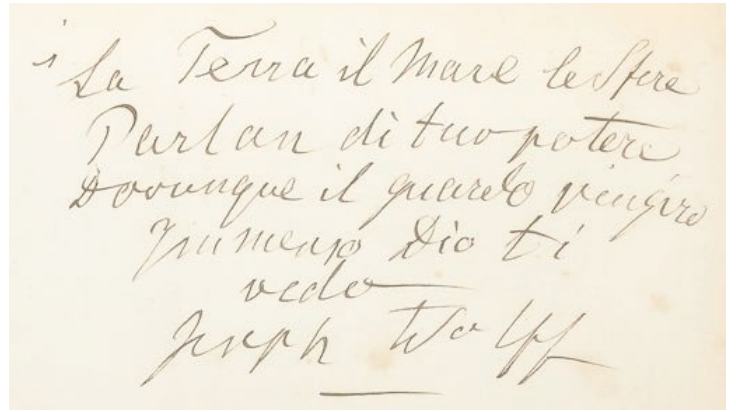 La Terra il Mare le Sfere
Parlan di tuo potere
Dovunque il guardo in giro
Immenso Dio ti
vedo
Joseph Wolff